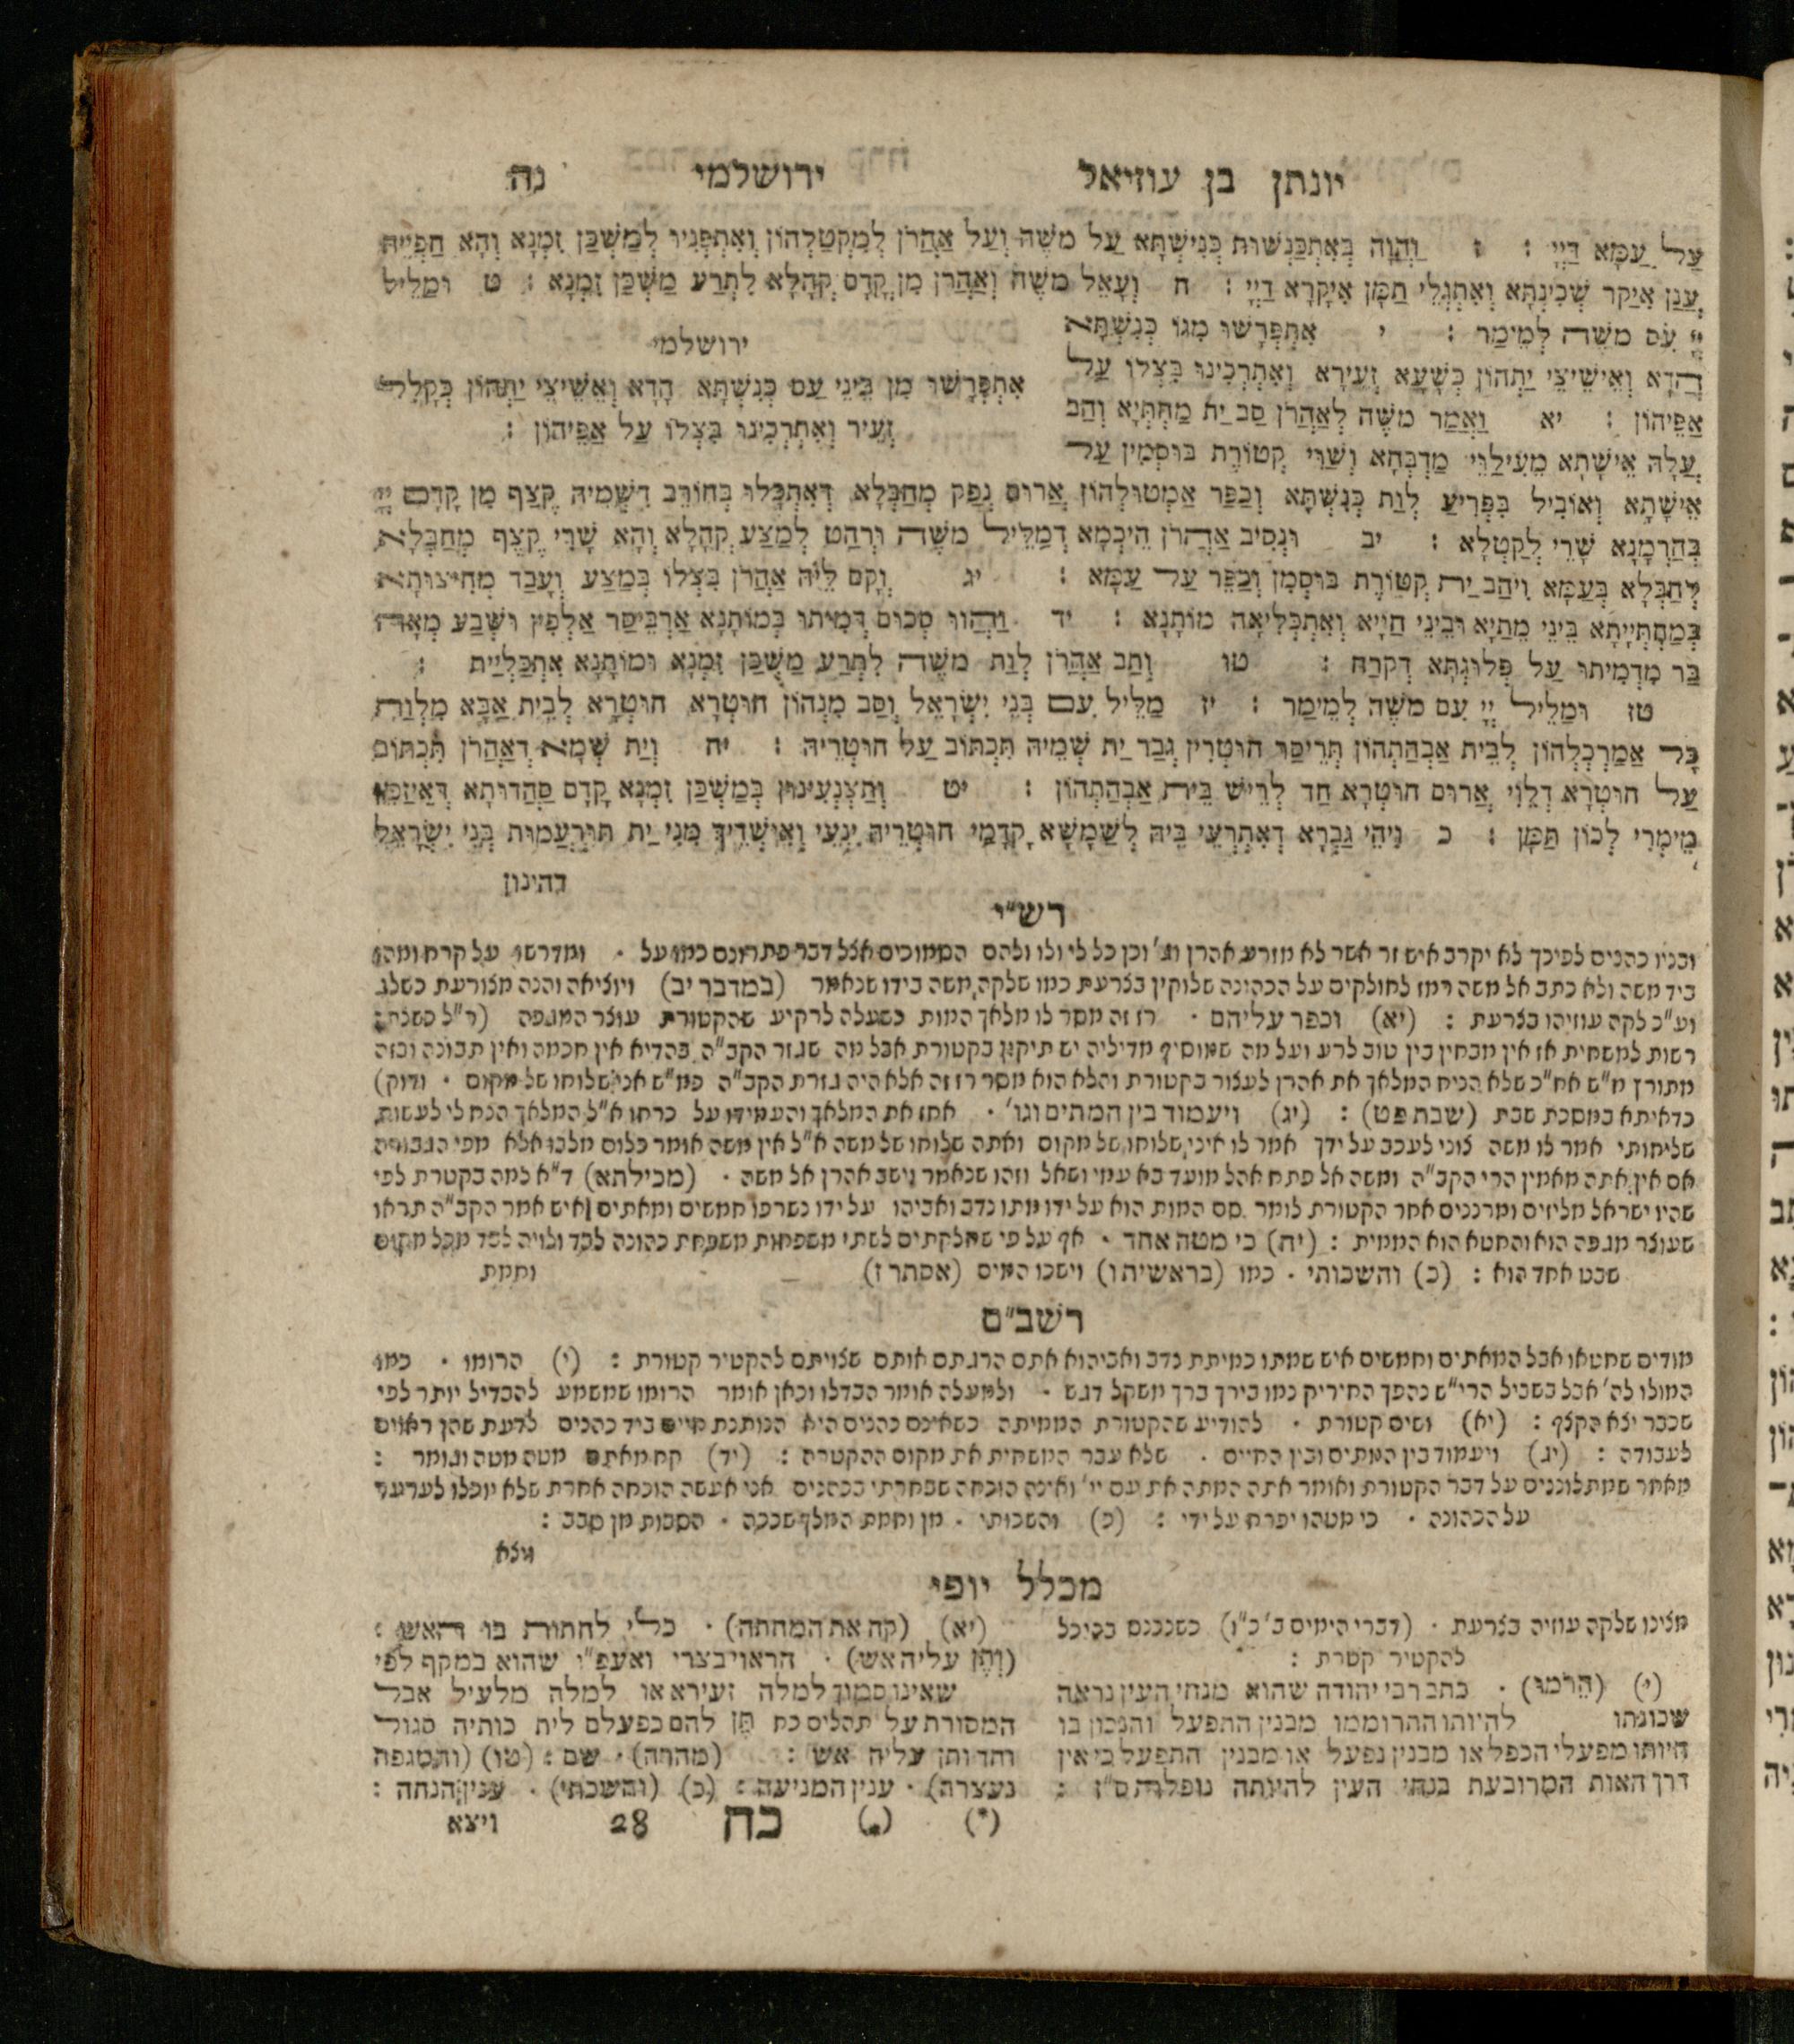 יונתן בן עוזיאל ירושלמי נה
עַל עַמָּא דַיְיָ : ז וַהֲוָה בְּאִתְכַּנְשׁוּת כְּנִישְׁתָּא עַל מֹשֶׁה וְעַל אַהֲרֹן לְמִקְטַלְהוֹן וְאִתְפְּנִיו לְמַשְׁכַּן זִמְנָא וְהָא חַפְיֵיהּ
עֲנַן אִיקַר שְׁכִינְתָּא וְאִתְגְּלֵי תַּמָּן אִיקָרָא דַיְיָ : ח וְעָאֵל מֹשֶׁה וְאַהֲרֹן מִן קֳדָם קְהָלָא לִתְרַע מַשְׁכַּן זִמְנָא : ט וּמַלֵּיל
יְיָ עִם מֹשֶׁה לְמֵימַר : י אִתְפְּרָשׁוּ מִגּוֹ כְּנִשְׁתָּא
הֲדָא וְאֵישֵׁיצֵי יַתְהוֹן כְּשָׁעָא זְעֵירָא וְאִתְרְכִינוּ בִּצְלוֹ עַל
אַפֵּיהוֹן : יא וַאֲמַר מֹשֶׁה לְאַהֲרֹן סַב יַת מַחְתְּיָא וְהַב
עֲלָהּ אֵישָׁתָא מֵעִילַוֵּי מַדְבְּחָא וְשַׁוִּי קְטוֹרֶת בּוּסְמִין עַל
ירושלמי
אִתְפְּרָשׁוּ מִן בֵּינֵי עַם כְּנִשְׁתָּא הָדָא וְאֵשֵׁיצִי יַתְהוֹן כְּקָלִיל
זְעֵיר וְאִתְרְכִינוּ בִּצְלוֹ עַל אַפֵּיהוֹן :
אֵישָׁתָא וְאוֹבִיל בִּפְרִיעַ לְוַת כְּנִשְׁתָּא וְכַפַּר אַמְטוּלְהוֹן אֲרוּם נְפַק מְחַבְּלָא דְּאִתְכְּלוּ בְּחוֹרֵב דִּשְׁמֵיהּ קֶצֶף מִן קֳדָם יְיָ
בְּהַרְמָנָא שָׁרֵי לְקַטְלָא : יב וּנְסִיב אַהֲרֹן הֵיכְמָא דְמַלֵּיל מֹשֶׁה וּרְהַט לְמִצַּע קְהָלָא וְהָא שָׁרֵי קֶצֶף מְחַבְּלָא
לְחַבְּלָא בְּעַמָּא וִיהַב יַת קְטוֹרֶת בּוּסְמִן וְכַפֵּר עַל עַמָּא : יג וְקָם לֵיהּ אַהֲרֹן בִּצְלוֹ בְּמִצַע וְעָבַד מְחִיצוּתָא
בְּמַחְתְּיָתָא בֵּינֵי מֵתַיָּא וּבֵינֵי חַיָּיא וְאִתְכְּלִיאָה מוֹתָנָא : יד וַהֲווּ סְכוּם דְּמִיתוּ בְּמוֹתָנָא אַרְבֵּיסַר אַלְפִין וּשְׁבַע מְאָה
בַּר מִדְמִיתוּ עַל פְּלוּגְתָּא דְקֹרַח : טו וְתַב אַהֲרֹן לְוַת מֹשֶׁה לִתְרַע מַשְׁכַּן זִמְנָא וּמוֹתָנָא אִתְכְּלָיַית :
טז וּמַלֵּיל יְיָ עִם מֹשֶׁה לְמֵימַר : יז מַלֵּיל עִם בְּנֵי יִשְׂרָאֵל וְסַב מִנְהוֹן חוּטְרָא חוּטְרָא לְבֵית אַבָּא מִלְוַת
כָּל אַמַרְכְּלְהוֹן לְבֵית אַבְהַתְהוֹן תְּרֵיסַר חוּטְרִין גְּבַר יַת שְׁמֵיהּ תִּכְתּוֹב עַל חוּטְרֵיהּ : יח וְיַת שְׁמָא דְאַהֲרֹן תִּכְתּוֹב
עַל חוּטְרָא דְלֵוִי אֲרוּם חוּטְרָא חַד לְרֵישׁ בֵּית אַבְהַתְהוֹן : יט וְתַצְנְעִינוּן בְּמַשְׁכַּן זִמְנָא קֳדָם סַהֲדוּתָא דְּאֵיזַמֵּן
מֵימְרִי לְכוֹן תַּמָּן : כ וִיהֵי גַּבְרָא דְאִתְרְעֵי בֵּיהּ לְשַׁמָּשָׁא קֳדָמַי חוּטְרֵיהּ יִנְעֵי וְאֵישְׁדֵיךְ מִנִּי יַת תּוּרְעֲמוּת בְּנֵי יִשְׂרָאֵל
דהינון
רש״י
ובניו כהנים לפיכך לא יקרב איש זר אשר לא מזרע אהרן וגו' וכן כל לי ולו ולהם הסמוכים אצל דבר פתרונם כמו על · ומדרשו על קרח ומהו
ביד משה ולא כתב אל משה רמז לחולקים על הכהונה שלוקין בצרעת כמו שלקה משה בידו שנאמר (במדבר יב) ויוציאה והנה מצורעת כשלג
וע״כ לקה עוזיהו בצרעת : (יא) וכפר עליהם · רז זה מסר לו מלאך המות כשעלה לרקיע שהקטורת עוצר המגפה (ר״ל כשנתן
רשות למשחית אז אין מבחין בין טוב לרע ועל מה שמוסיף מדיליה יש תיקון בקטורת אבל מה שגזר הקב״ה בהדיא אין חכמה ואין תבונה ובזה
מתורץ מ״ש אח״כ שלא הניח המלאך את אהרן לעצור בקטורת והלא הוא מסר רז זה אלא היה גזרת הקב״ה כמ״ש אני שלוחו של מקום · ודוק)
כדאיתא במסכת שבת (שבת פט) : (יג) ויעמוד בין המתים וגו' · אחז את המלאך והעמידו על כרחו א״ל המלאך הנח לי לעשות
שליחותי אמר לו משה צוני לעכב על ידך אמר לו אני שלוחו של מקום ואתה שלוחו של משה א״ל אין משה אומר כלום מלבו אלא מפי הגבורה
אם אין אתה מאמין הרי הקב״ה ומשה אל פתח אהל מועד בא עמי ושאל וזהו שנאמר וישב אהרן אל משה · (מכילתא) ד״א למה בקטרת לפי
שהיו ישראל מליזים ומרננים אחר הקטורת לומר סם המות הוא על ידו מתו נדב ואביהו על ידו נשרפו חמשים ומאתים איש אמר הקב״ה תראו
שעוצר מגפה הוא והחטא הוא הממית : (יח) כי מטה אחד · אף על פי שחלקתים לשתי משפחות משפחת כהונה לבד ולויה לבד מכל מקום
שבט אחד הוא : (כ) והשכותי · כמו (בראשית ו) וישכו המים (אסתר ז) וחמת
רשב״ם
מודים שחטאו אבל המאתים וחמשים איש שמתו כמיתת נדב ואביהוא אתם הרגתם אותם שצויתם להקטיר קטורת : (י) הרומו · כמו
המולו לה' אבל בשביל הרי״ש נהפך החיריק כמו בירך ברך משקל דגש · ולמעלה אומר הבדלו וכאן אומר הרומו שמשמע להבדיל יותר לפי
שכבר יצא הקצף : (יא) ושים קטורת · להודיע שהקטורת הממיתה כשאינם כהנים היא הנותנת חיים ביד כהנים לדעת שהן ראוים
לעבודה : (יג) ויעמוד בין המתים ובין החיים · שלא עבר המשחית את מקום ההקטרה : (יד) קח מאתם מטה מטה וגומר :
מאחר שמתלוננים על דבר הקטורת ואומר אתה המתה את עם יי' ואינה הוכחה שבחרתי בכהנים אני אעשה הוכחה אחרת שלא יוכלו לערער
על הכהונה · כי מטהו יפרח על ידי : (כ) והשכותי · מן וחמת המלך שככה · הסבות מן סבב :
ויצא
מכלל יופי
מצינו שלקה עוזיה בצרעת · (דברי הימים ב' כ״ו) כשנכנס בהיכל
להקטיר קטרת :
(י) (הֵרֹמּוּ) · כתב רבי יהודה שהוא מנחי העין נראה
שכוונתו להיותו התרוממו מבנין התפעל והנכון בו
היותו מפעלי הכפל או מבנין נפעל או מבנין התפעל כי אין
דרך האות המרובעת בנחי העין להיותה נופלת ס״ז :
(יא) (קח את המחתה) · כלי לחתות בו האש :
(וְתֶן עליה אש) · הראוי בצרי ואעפ״י שהוא במקף לפי
שאינו סמוך למלה זעירא או למלה מלעיל אבל
המסורת על תהלים כח תֶּן להם כפעלם לית כותיה סגול
וחד ותן עליה אש : (מהרה) · שם : (טו) (והמגפה
נעצרה) · ענין המניעה : (כ) (והשכתי) · ענין הנחה :
(*) כח 28 ויצא